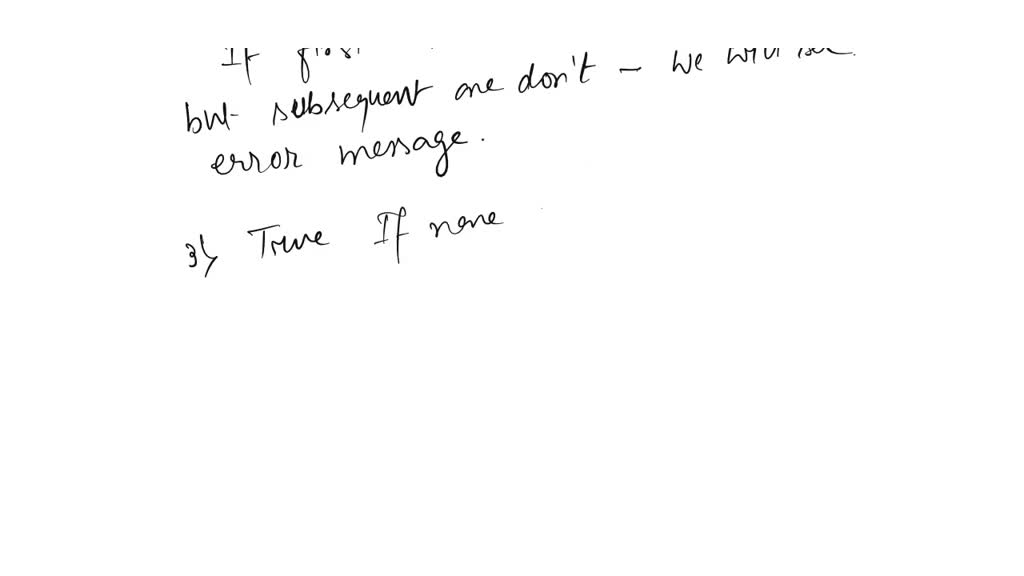 If first
but subsequent one don't - we will see
error message.
3) True If none